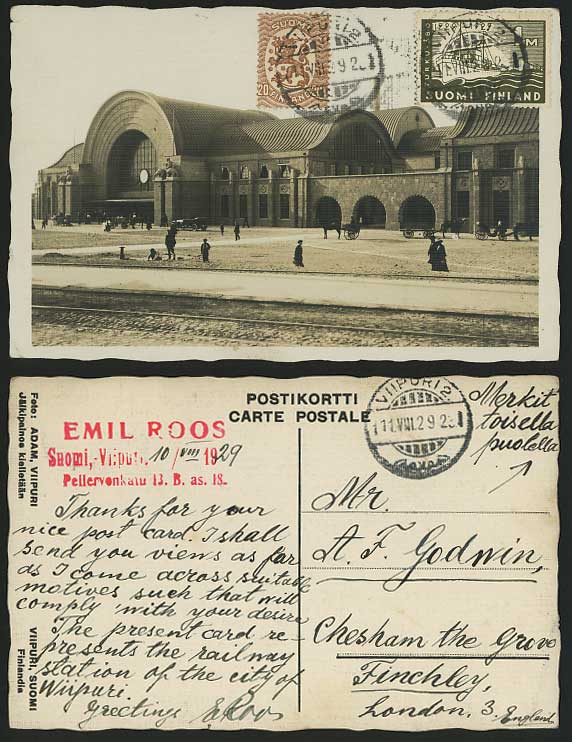 SUOMI
20 PENNIÄ
VIIPURI 2
TURKU ÅBO
1229 1929
1 M
SUOMI FINLAND
POSTIKORTTI
CARTE POSTALE
VIIPURI 2
11.VIII.29
Merkit
toisella
puolella
EMIL ROOS
Suomi, Viipuri, 10/VIII 1929
Pellervonkatu 13. B. as. 18.
Thanks for your
nice post card. I shall
send you views as far
as I come across suitable
motives such that will
comply with your desire
The present card re-
presents the railway
station of the city of
Wiipuri.
Greetings ERoos
Mr.
A. F. Godwin,
Chesham the Grove
Finchley,
London, 3, England
Foto: ADAM, VIIPURI
Jälkipainos kielletään
VIIPURI, SUOMI
Finlandia